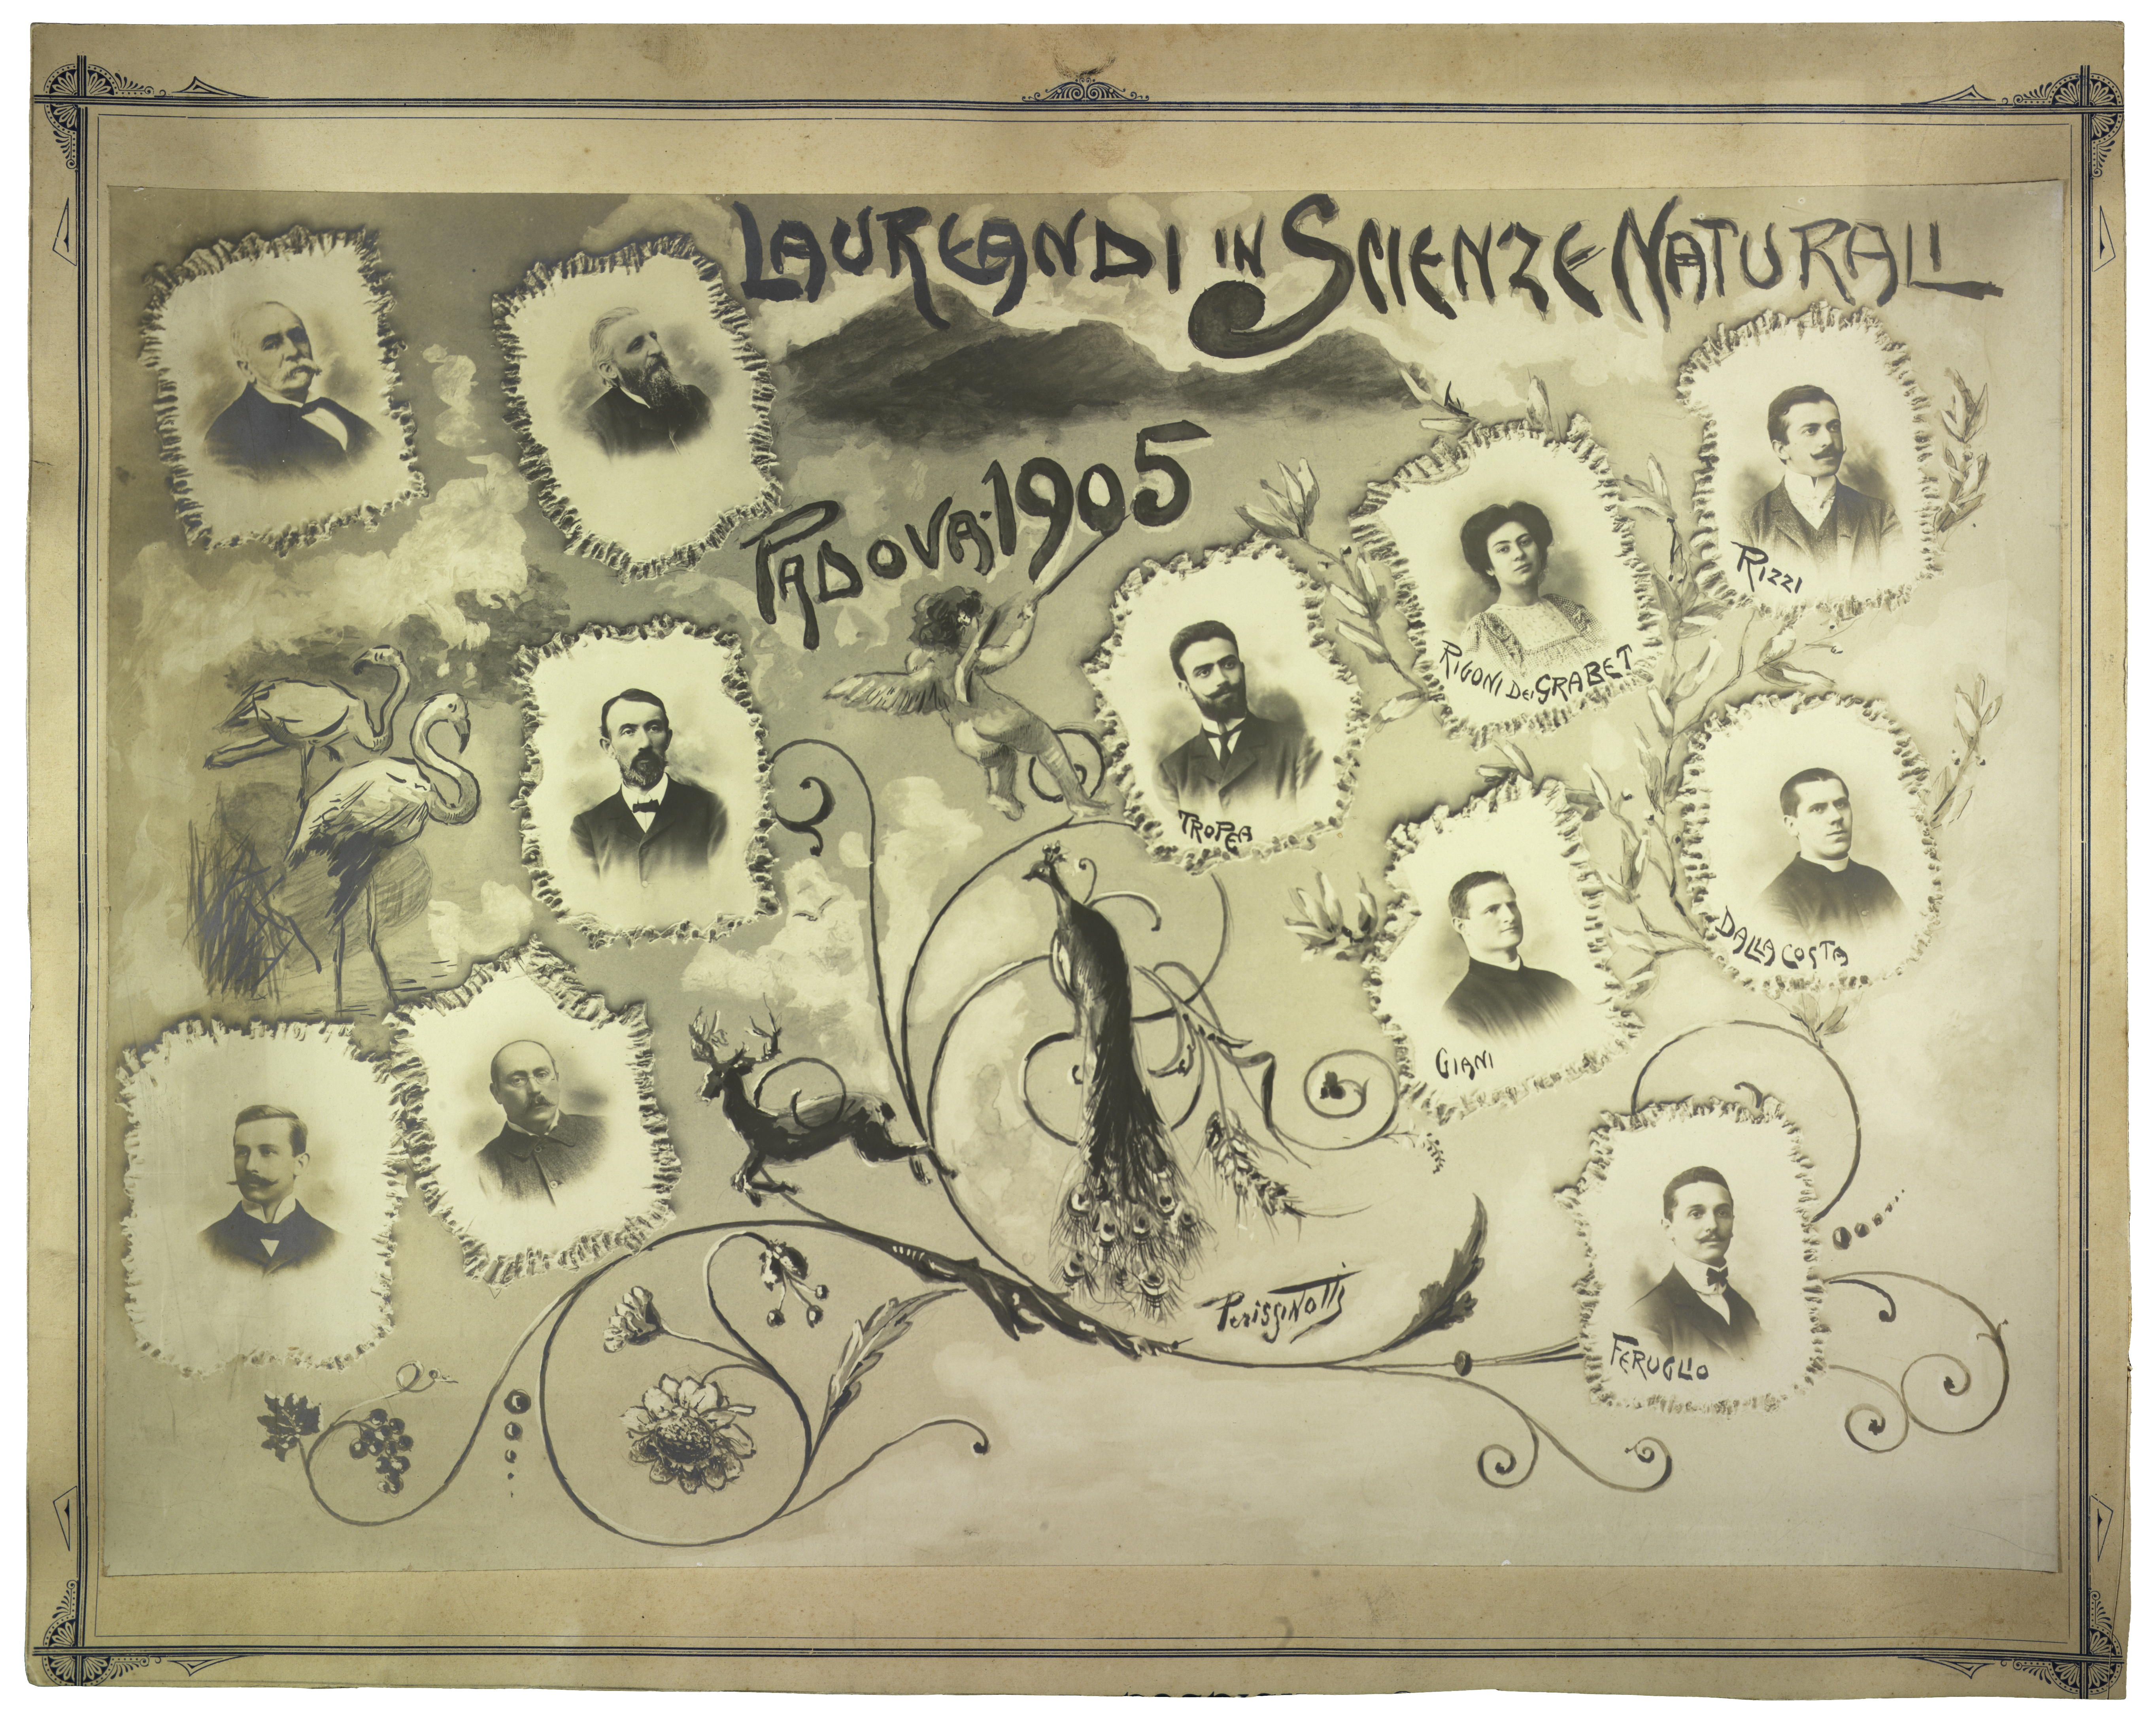 LAUREANDI IN SCIENZE NATURALI
PADOVA·1905
RIZZI
RIGONI DEI GRABET
TROPEA
DALLA COSTA
GIANI
FERUGLIO
Perissinotti